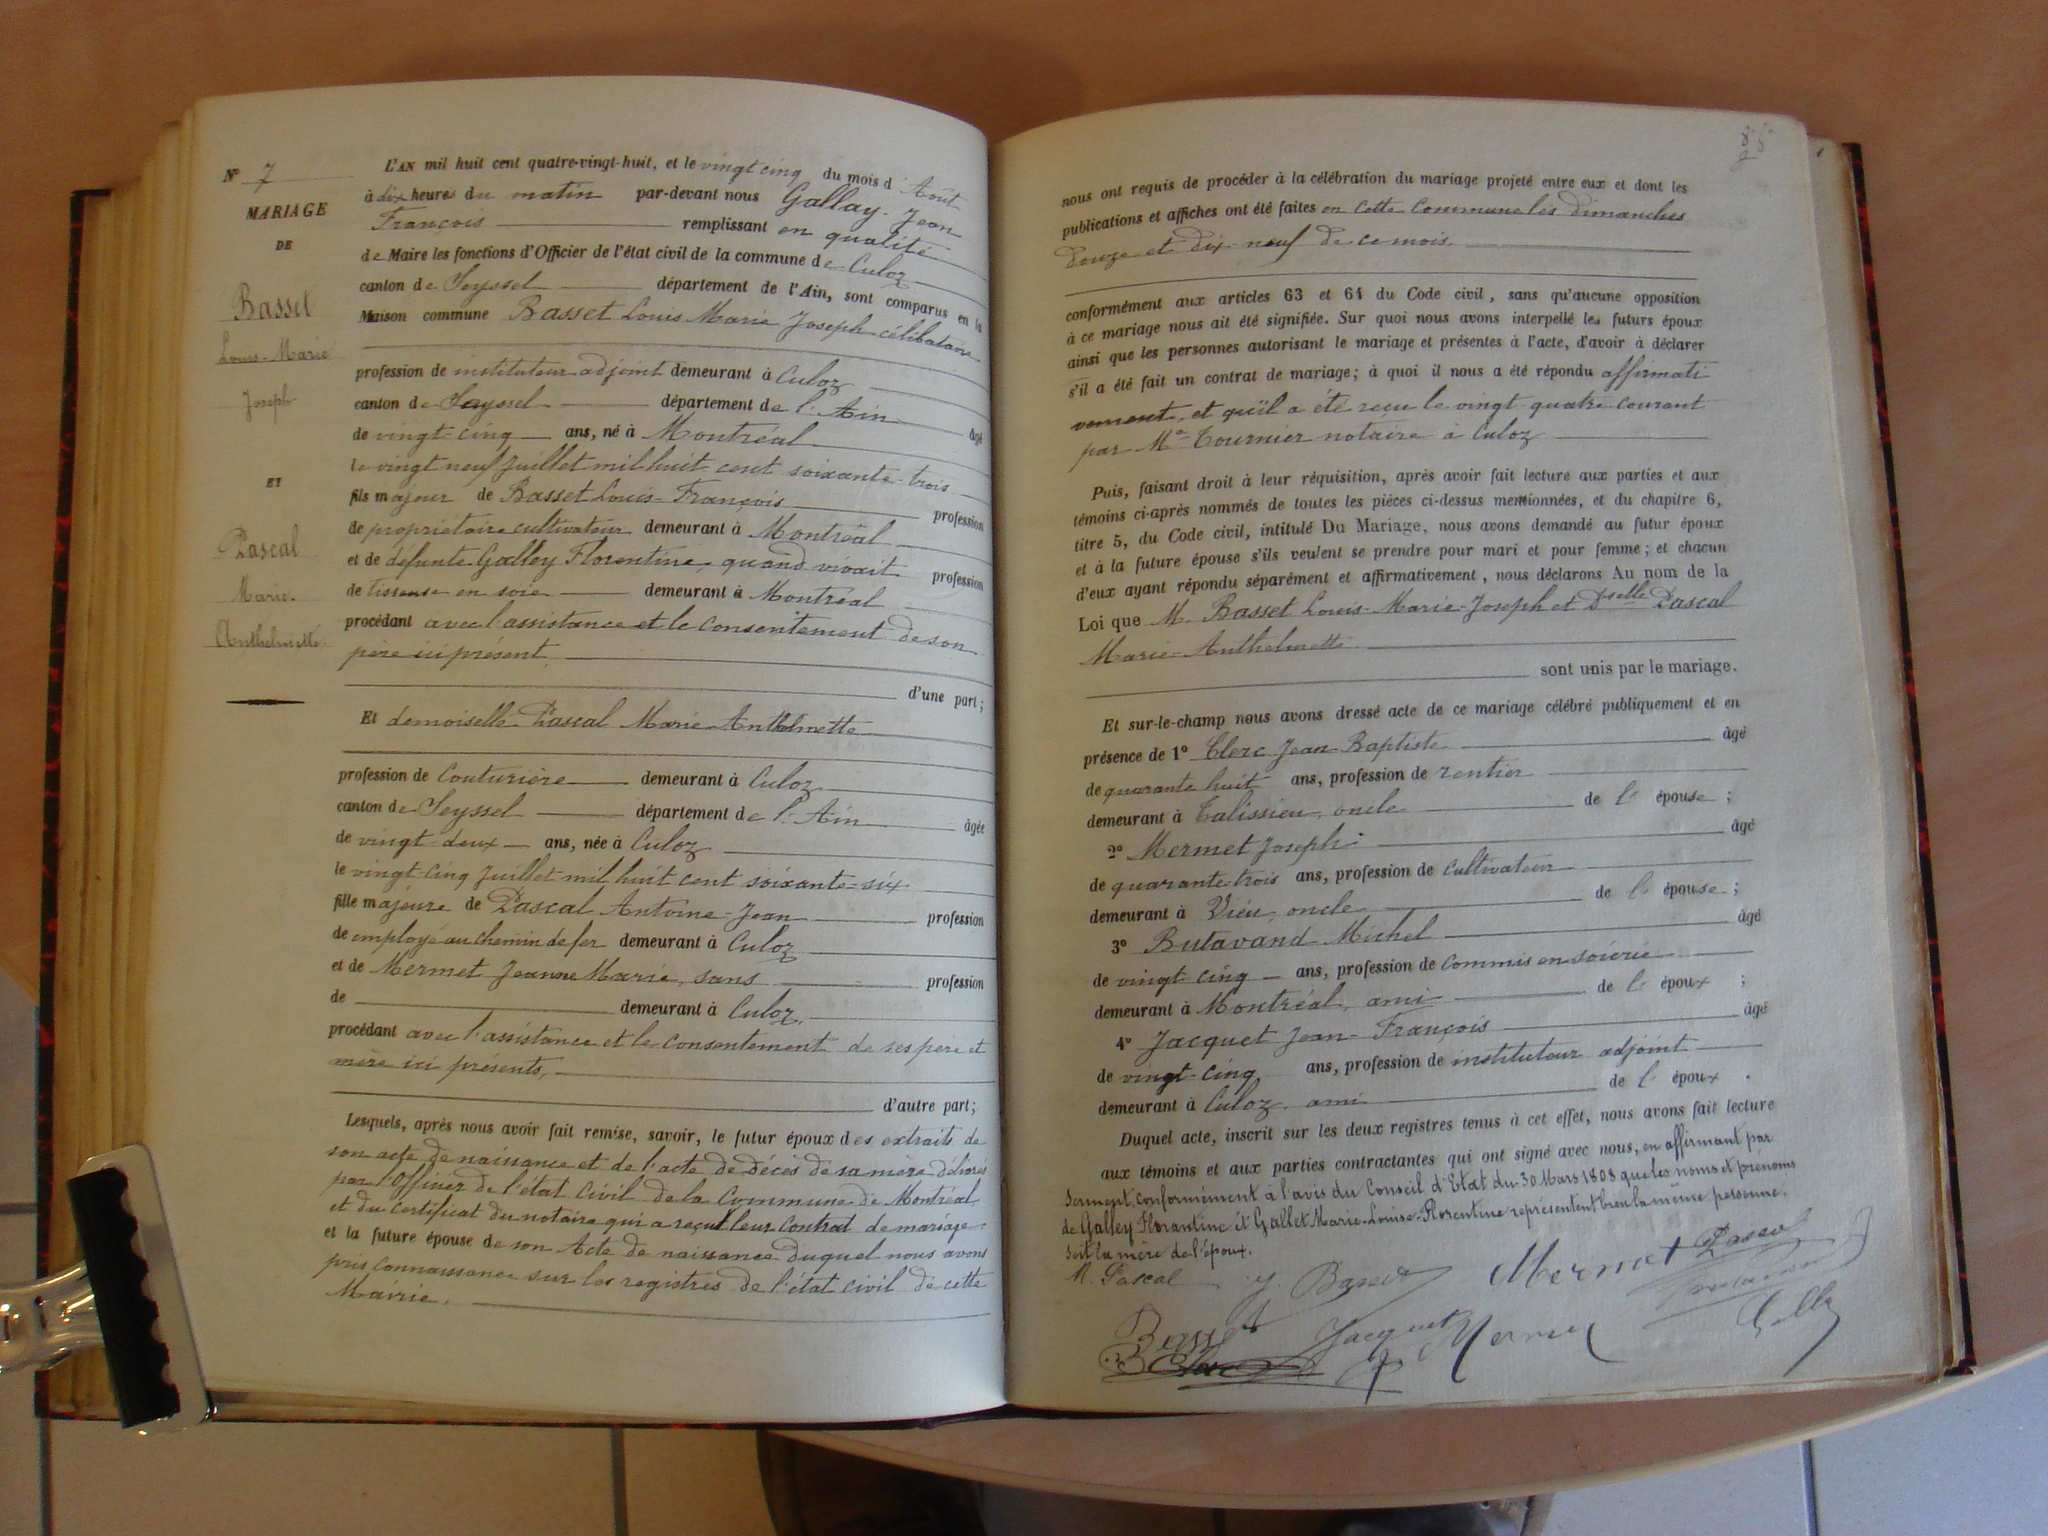 N° 7
MARIAGE
DE
Basset
Louis-Marie
Joseph
ET
Pascal
Marie.
Anthelmette
L'AN mil huit cent quatre-vingt-huit, et le vingt cinq du mois d'Août
à dix heures du matin par-devant nous Gallay Jean
François remplissant en qualité
de Maire les fonctions d'Officier de l'état civil de la commune de Culoz
canton de Seyssel département de l'Ain, sont comparus en la
Maison commune Basset Louis Marie Joseph célibataire
profession de instituteur adjoint demeurant à Culoz
canton de Seyssel département de l'Ain âgé
de vingt-cinq ans, né à Montréal
le vingt neuf Juillet mil huit cent soixante-trois
fils majeur de Basset Louis-François profession
de propriétaire cultivateur demeurant à Montréal
et de défunte Galley Florentine, quand vivait profession
de tisseuse en soie demeurant à Montréal
procédant avec l'assistance et le consentement de son
père ici présent
d'une part;
Et demoiselle Pascal Marie Anthelmette
profession de Couturière demeurant à Culoz
canton de Seyssel département de l'Ain âgée
de vingt deux ans, née à Culoz
le vingt-cinq Juillet mil huit cent soixante-six
fille majeure de Pascal Antoine-Jean profession
de employé au chemin de fer demeurant à Culoz
et de Mermet Jeanne Marie, sans profession
de demeurant à Culoz,
procédant avec l'assistance et le consentement de ses père et
mère ici présents,
d'autre part;
Lesquels, après nous avoir fait remise, savoir, le futur époux des extraits de
son acte de naissance et de l'acte de décès de sa mère délivrés
par l'Officier de l'état civil de la Commune de Montréal
et du certificat du notaire qui a reçut leur Contrat de mariage.
et la future épouse de son Acte de naissance duquel nous avons
pris connaissance sur les registres de l'état civil de cette
Mairie.
85
nous ont requis de procéder à la célébration du mariage projeté entre eux et dont les
publications et affiches ont été faites en cette Commune les dimanches
douze et dix-neuf de ce mois.
conformément aux articles 63 et 64 du Code civil, sans qu'aucune opposition
à ce mariage nous ait été signifiée. Sur quoi nous avons interpellé les futurs époux
ainsi que les personnes autorisant le mariage et présentes à l'acte, d'avoir à déclarer
s'il a été fait un contrat de mariage; à quoi il nous a été répondu affirmati
vement, et qu'il a été reçu le vingt-quatre courant
par Me Tournier notaire à Culoz
Puis, faisant droit à leur réquisition, après avoir fait lecture aux parties et aux
témoins ci-après nommés de toutes les pièces ci-dessus mentionnées, et du chapitre 6,
titre 5, du Code civil, intitulé Du Mariage, nous avons demandé au futur époux
et à la future épouse s'ils veulent se prendre pour mari et pour femme; et chacun
d'eux ayant répondu séparément et affirmativement, nous déclarons Au nom de la
Loi que M. Basset Louis-Marie-Joseph et Dselle Pascal
Marie-Anthelmette
sont unis par le mariage.
Et sur-le-champ nous avons dressé acte de ce mariage célébré publiquement et en
présence de 1° Clerc Jean-Baptiste âgé
de quarante huit ans, profession de rentier
demeurant à Talissieu, oncle de l'épouse;
2° Mermet Joseph âgé
de quarante-trois ans, profession de cultivateur
demeurant à Vieu, oncle de l'épouse;
3° Butavand Michel âgé
de vingt cinq ans, profession de commis en soierie
demeurant à Montréal, ami de l'époux;
4° Jacquet Jean-François âgé
de vingt-cinq ans, profession de instituteur adjoint
demeurant à Culoz, ami de l'époux.
Duquel acte, inscrit sur les deux registres tenus à cet effet, nous avons fait lecture
aux témoins et aux parties contractantes qui ont signé avec nous, en affirmant par
serment, conformément à l'avis du Conseil d'Etat du 30 Mars 1808 que les noms et prénoms
de Galley Florentine et Gallet Marie-Louise-Florentine représentent bien la même personne.
soit la mère de l'époux.
M. Pascal J. Basset Mermet Pascal
Basset Jacquet Mermet
Clerc